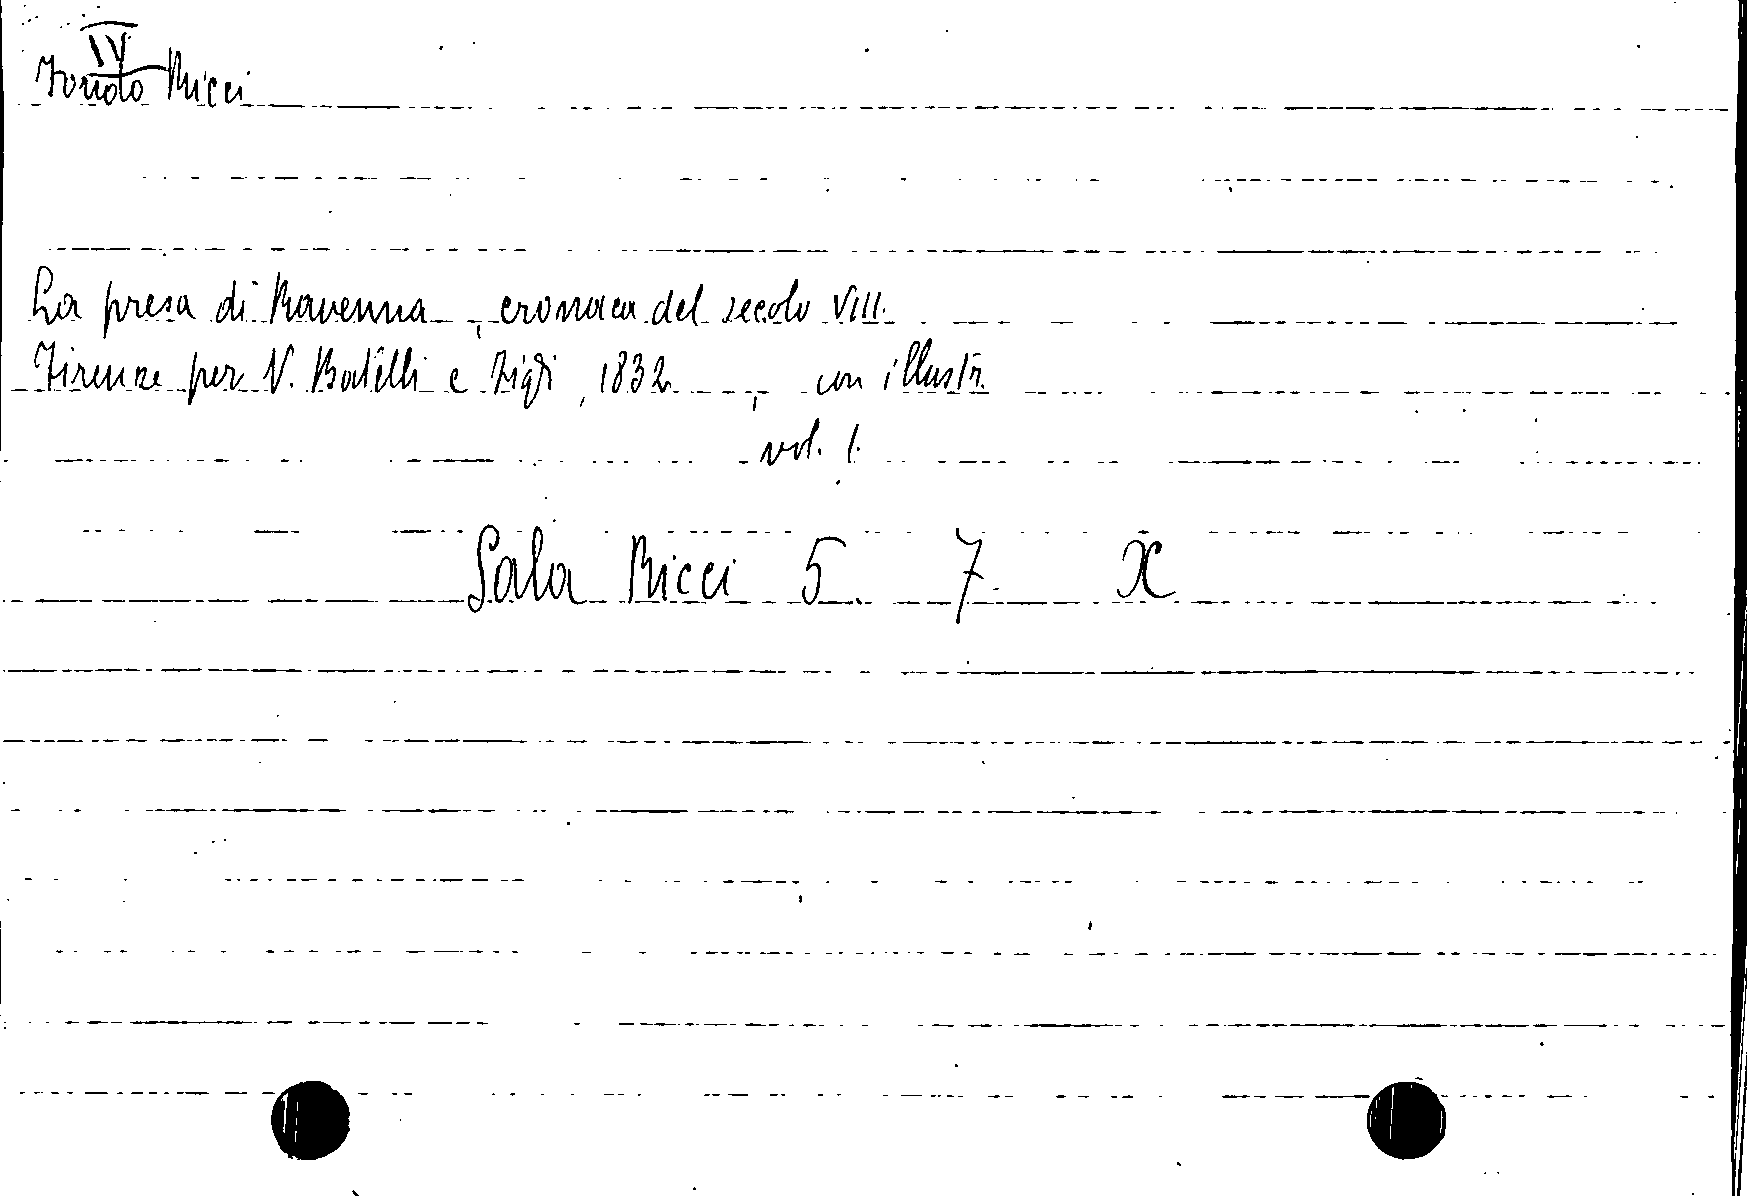 IV
Fondo Ricci
La presa di Ravenna, cronaca del secolo VIII.
Firenze per V. Batelli e Figli, 1832, con illustr.
vol. 1.
Sala Ricci 5. 7. X